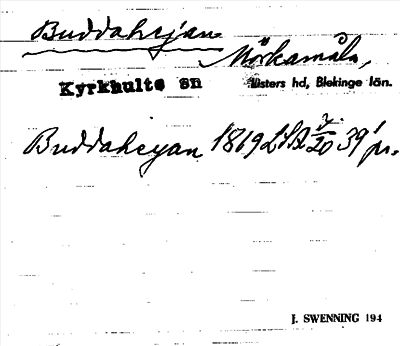 Buddahejan
Mörkamåla,
Kyrkhults sn Listers hd, Blekinge län.
Buddahejan 1869 LSA 39 pr.
J. SWENNING 194